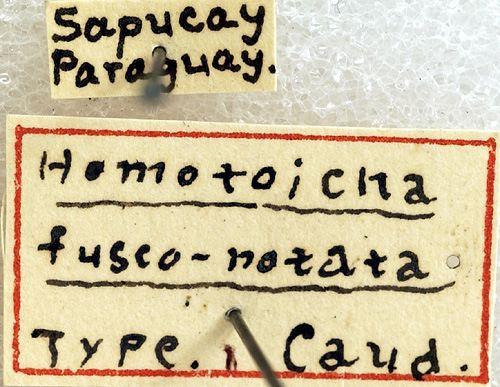 Sapucay
Paraguay.
Homotoicha
fusco-notata
Type. Caud.